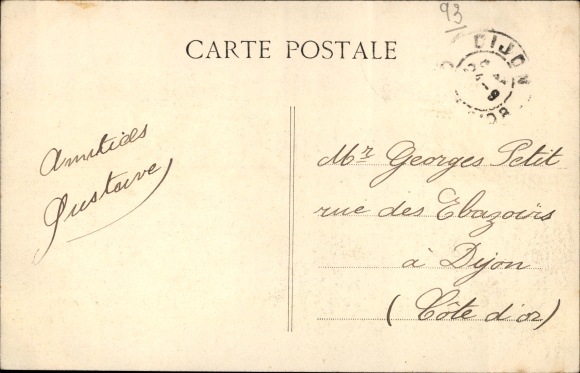 93
DIJON
CARTE POSTALE
Amitiés
Gustave
Mr Georges Petit
rue des Ebazoirs
à Dijon
(Côte d'or)